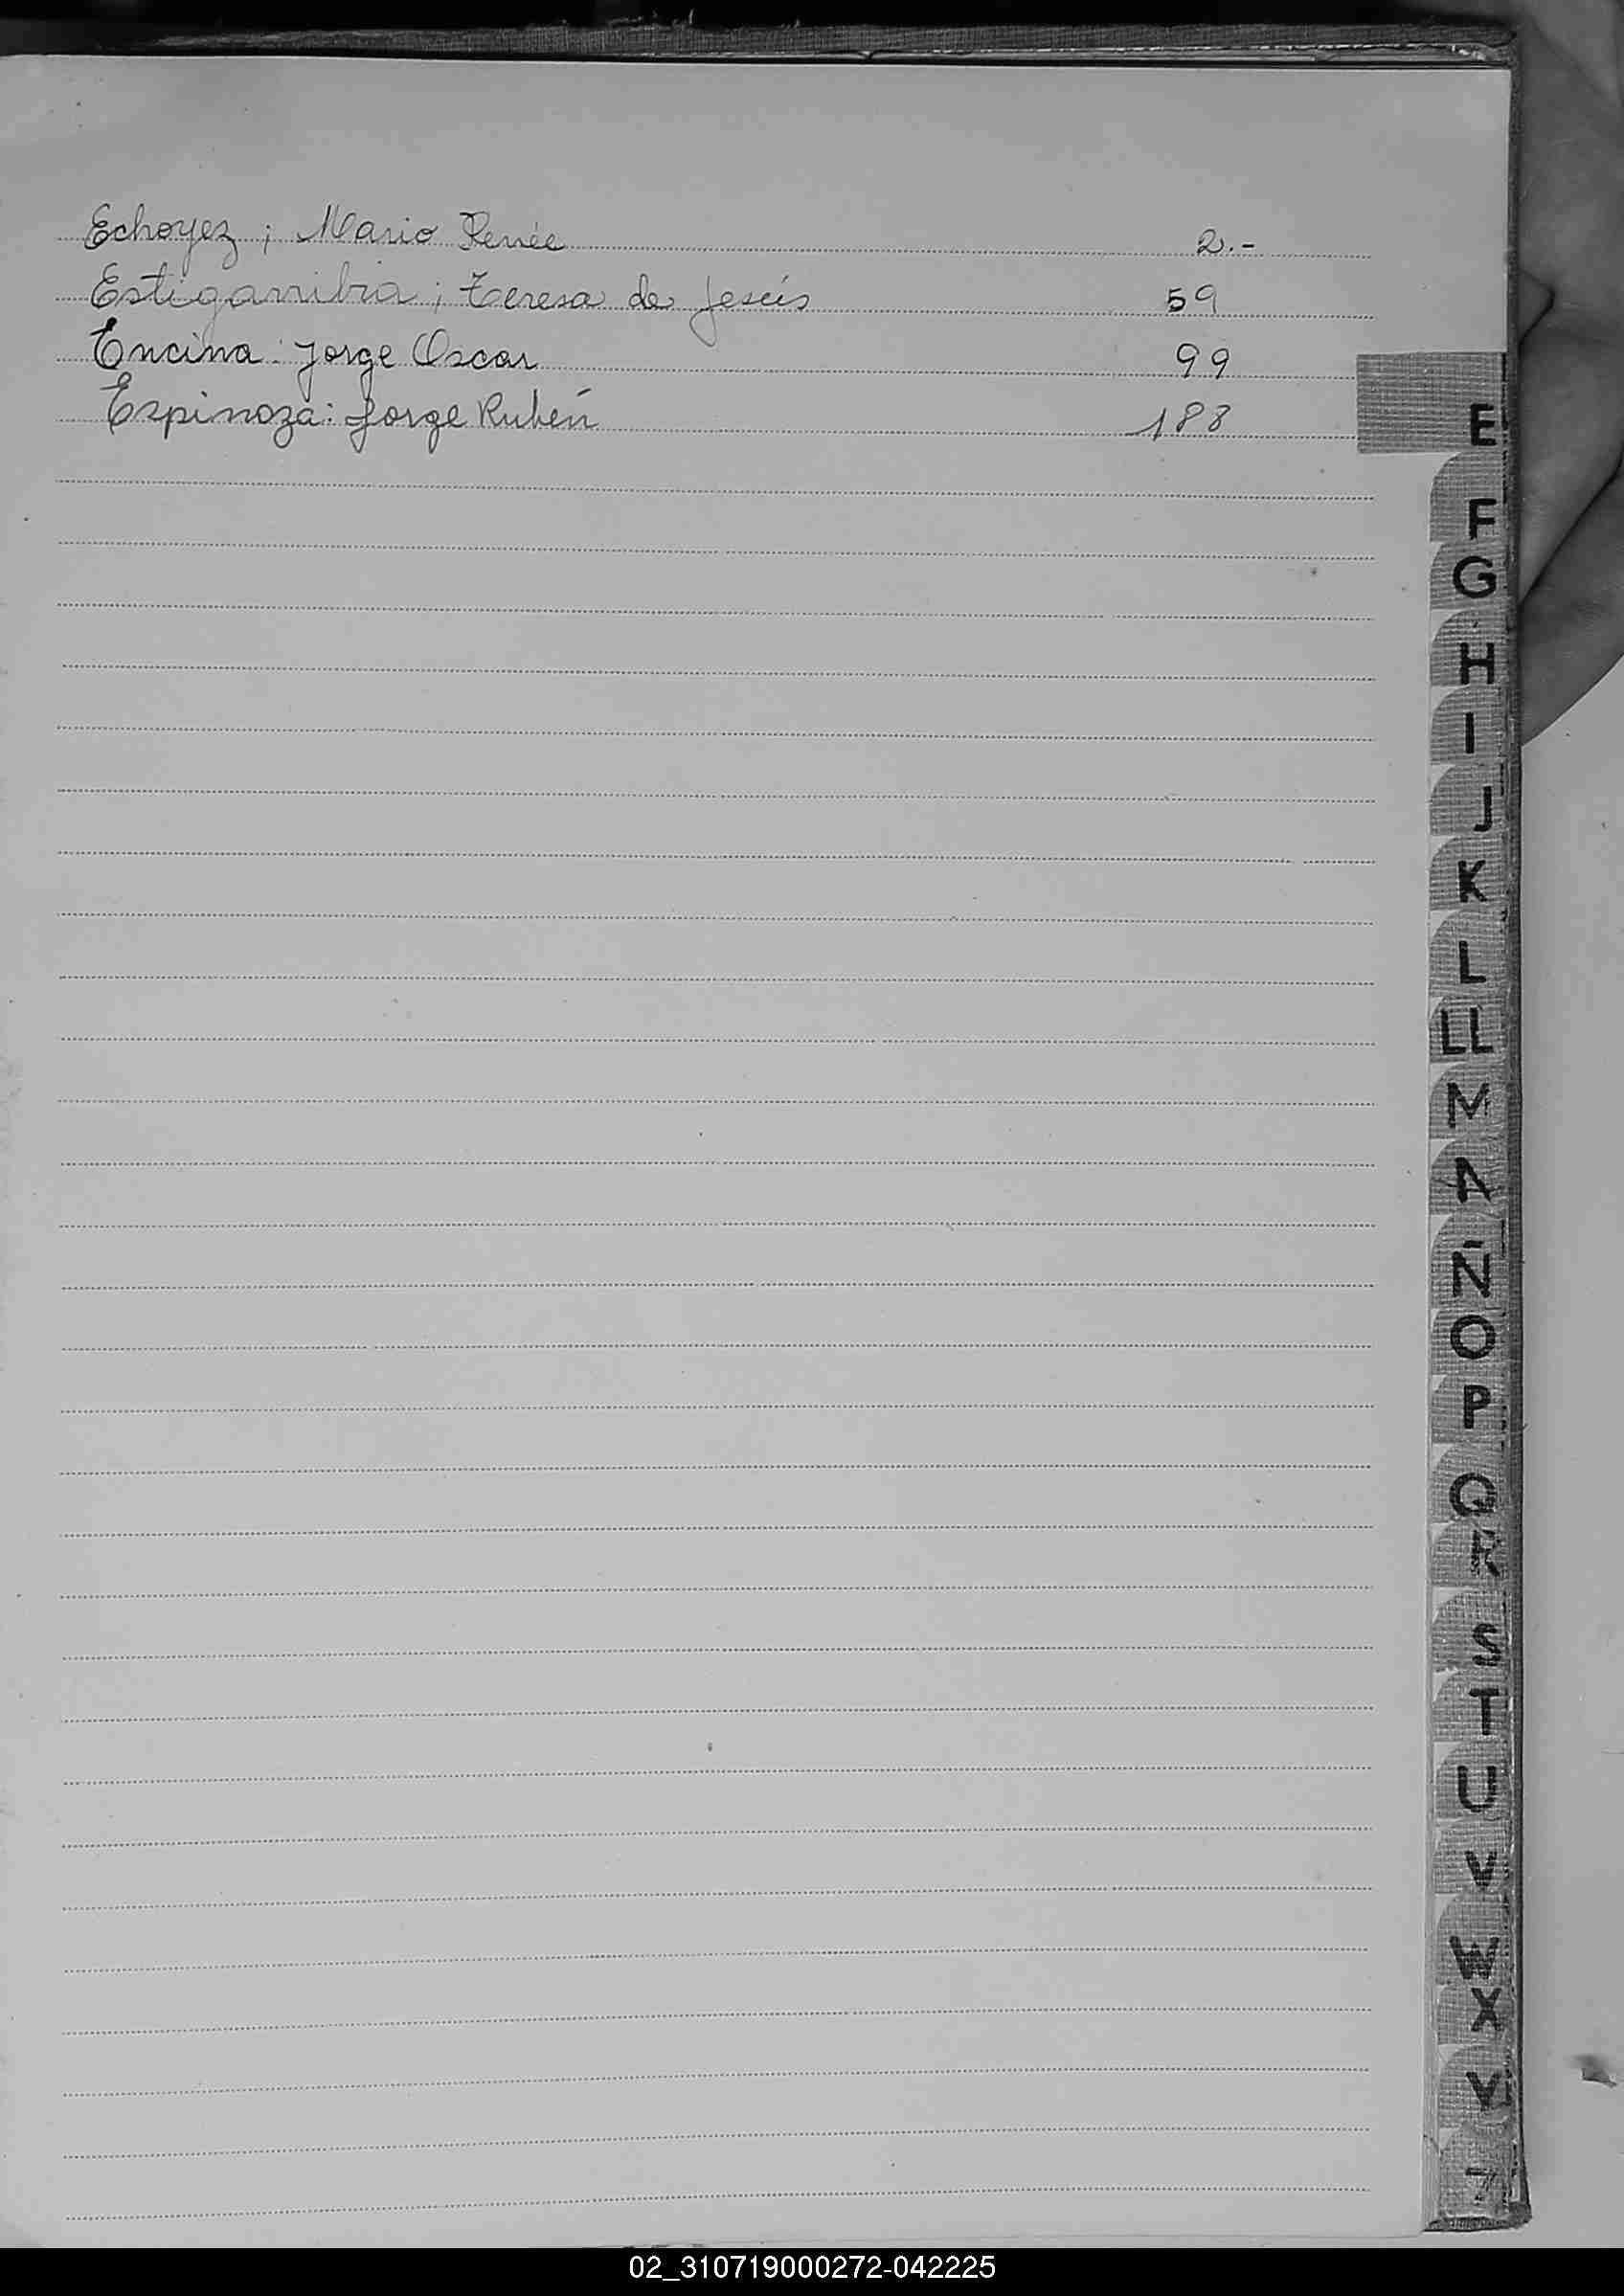 Echoyez; Mario Renée 2.-
Estigarribia; Teresa de Jesús 59
Encina: Jorge Oscar 99
Espinoza: Jorge Rubén 188
E
F
G
H
I
J
K
L
LL
M
N
Ñ
O
P
Q
R
S
T
U
V
W
X
Y
Z
02_310719000272-042225